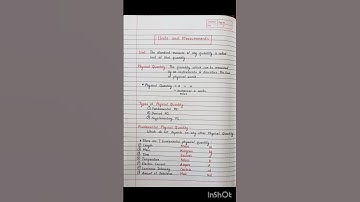 Units and Measurements
Unit : The standard measure of any quantity is called
unit of that quantity.
Physical Quantity : The quantity which can be measured
by an instruments & describes the laws
of physical world.
Physical Quantity = n × u
Types of Physical Quantity :
① Fundamental PQ
② Derived PQ
③ Supplementary PQ
Fundamental Physical Quantity :
Which do not depends on any other Physical Quantity
There are 7 fundamental physical quantity :
① Length Metre m
② Mass Kilogram kg
③ Time Seconds
④ Temperature Kelvin K
⑤ Electric Current Ampere A
⑥ Luminous Intensity Candela cd
⑦ Amount of Substance Mole mol
InShOt